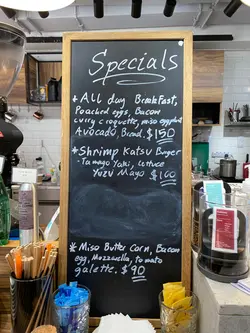 Specials
* All day Breakfast,
Poached eggs, Bacon
curry croquette, miso eggplant
Avocado, Bread. $150
* Shrimp Katsu Burger
- Tamago Yaki, Lettuce
Yuzu Mayo $160
* Miso Butter Corn, Bacon
egg, Mozzarella, tomato
galette. $90